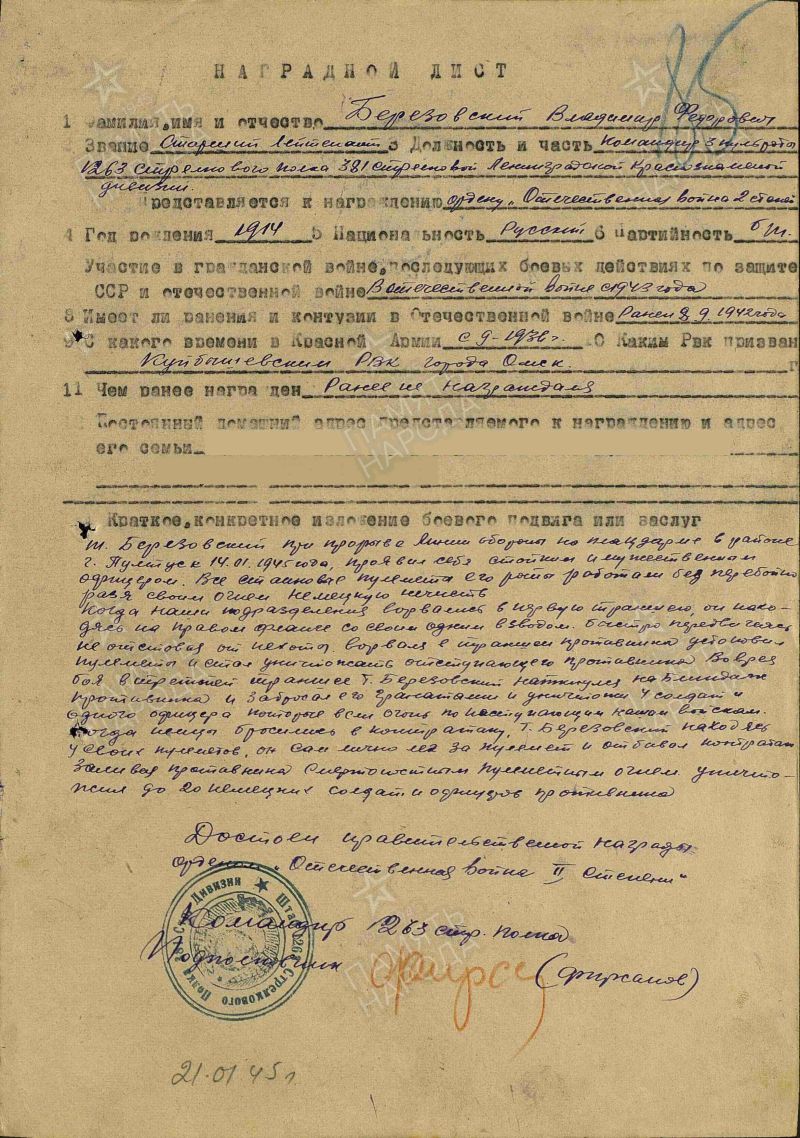 НАГРАДНОЙ ЛИСТ
1 Фамилия, имя и отчество Березовский Владимир Федорович
Звание Старший лейтенант 3 Должность и часть Командир 3 пульроты
1263 Стрелкового полка 381 стрелковой Ленинградской Краснознаменой
дивизии.
Представляется к награждению ордену „Отечественная война 2 степ
4 Год рождения 1914 5 Национальность Русский 6 Партийность б/п.
Участие в гражданской войне, последующих боевых действиях по защите
СССР и отечественной войне В отечественной войне с 1943 года
8 Имеет ли ранения и контузии в Отечественной войне Ранен 9. 1942 года
9 С какого времени в Красной Армии с 9-1936 г. 10 Каким Рвк призван
Куйбышевским РВК города Омск. г
11 Чем ранее награжден Ранее не награждался
Постоянный домашний адрес представляемого к награждению и адрес
его семьи
Краткое, конкретное изложение боевого подвига или заслуг
т. Березовский при прорыве линии обороны на плацдарме в районе
г. Пултуск 14.01.1945 года, проявил себя стойким и мужественным
офицером. Все станковые пулеметы его роты работали без перебойно
разя своим огнем немецкую нечисть
Когда наши подразделения ворвались в первую траншею, он нахо-
дясь на правом фланге со своим одним взводом. быстро передвигаясь
не отставая от пехоты, ворвался в траншеи противника установил
пулеметы и стал уничтожать отступающего противника Во врем
боя в третьей траншее т. Березовский наткнулся на блиндаж
противника и забросал его гранатами и уничтожил 4 солдат и
одного офицера которые вели огонь по наступающим нашим войскам.
Когда немцы бросились в контратаку, т. Березовский находясь
у своих пулеметов, он сам лично лег за пулемет и отбивал контратак
Заливая противника смертоносным пулеметным огнем уничто-
жил до 20 немецких солдат и офицеров противника
Достоен правительственной награды
орденом „Отечественная война II степени"
Командир 1263 стр. полка
Подполковник (Фирсанов)
Штаб 1263 Стрелкового Полка Стр. Дивизии
21.01.45 г.
ПАМЯТЬ НАРОДА